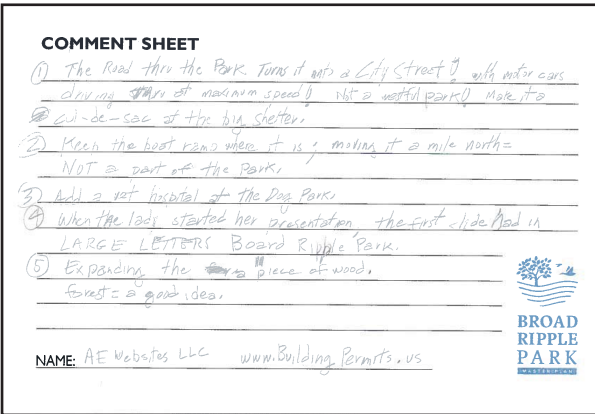 COMMENT SHEET
① The Road thru the Park Turns it into a City Street!! with motor cars
driving at maximum speed!! Not a restful park!! Make it a
cul-de-sac at the big shelter.
② Keep the boat ramp where it is; moving it a mile north =
NOT a part of the Park.
③ Add a vet hospital at the Dog Park.
④ When the lady started her presentation, the first slide had in
LARGE LETTERS Board Ripple Park.
⑤ Expanding the "piece of wood.
forest = a good idea.
NAME: AE Websites LLC www.Building Permits.us
BROAD
RIPPLE
PARK
MASTER PLAN